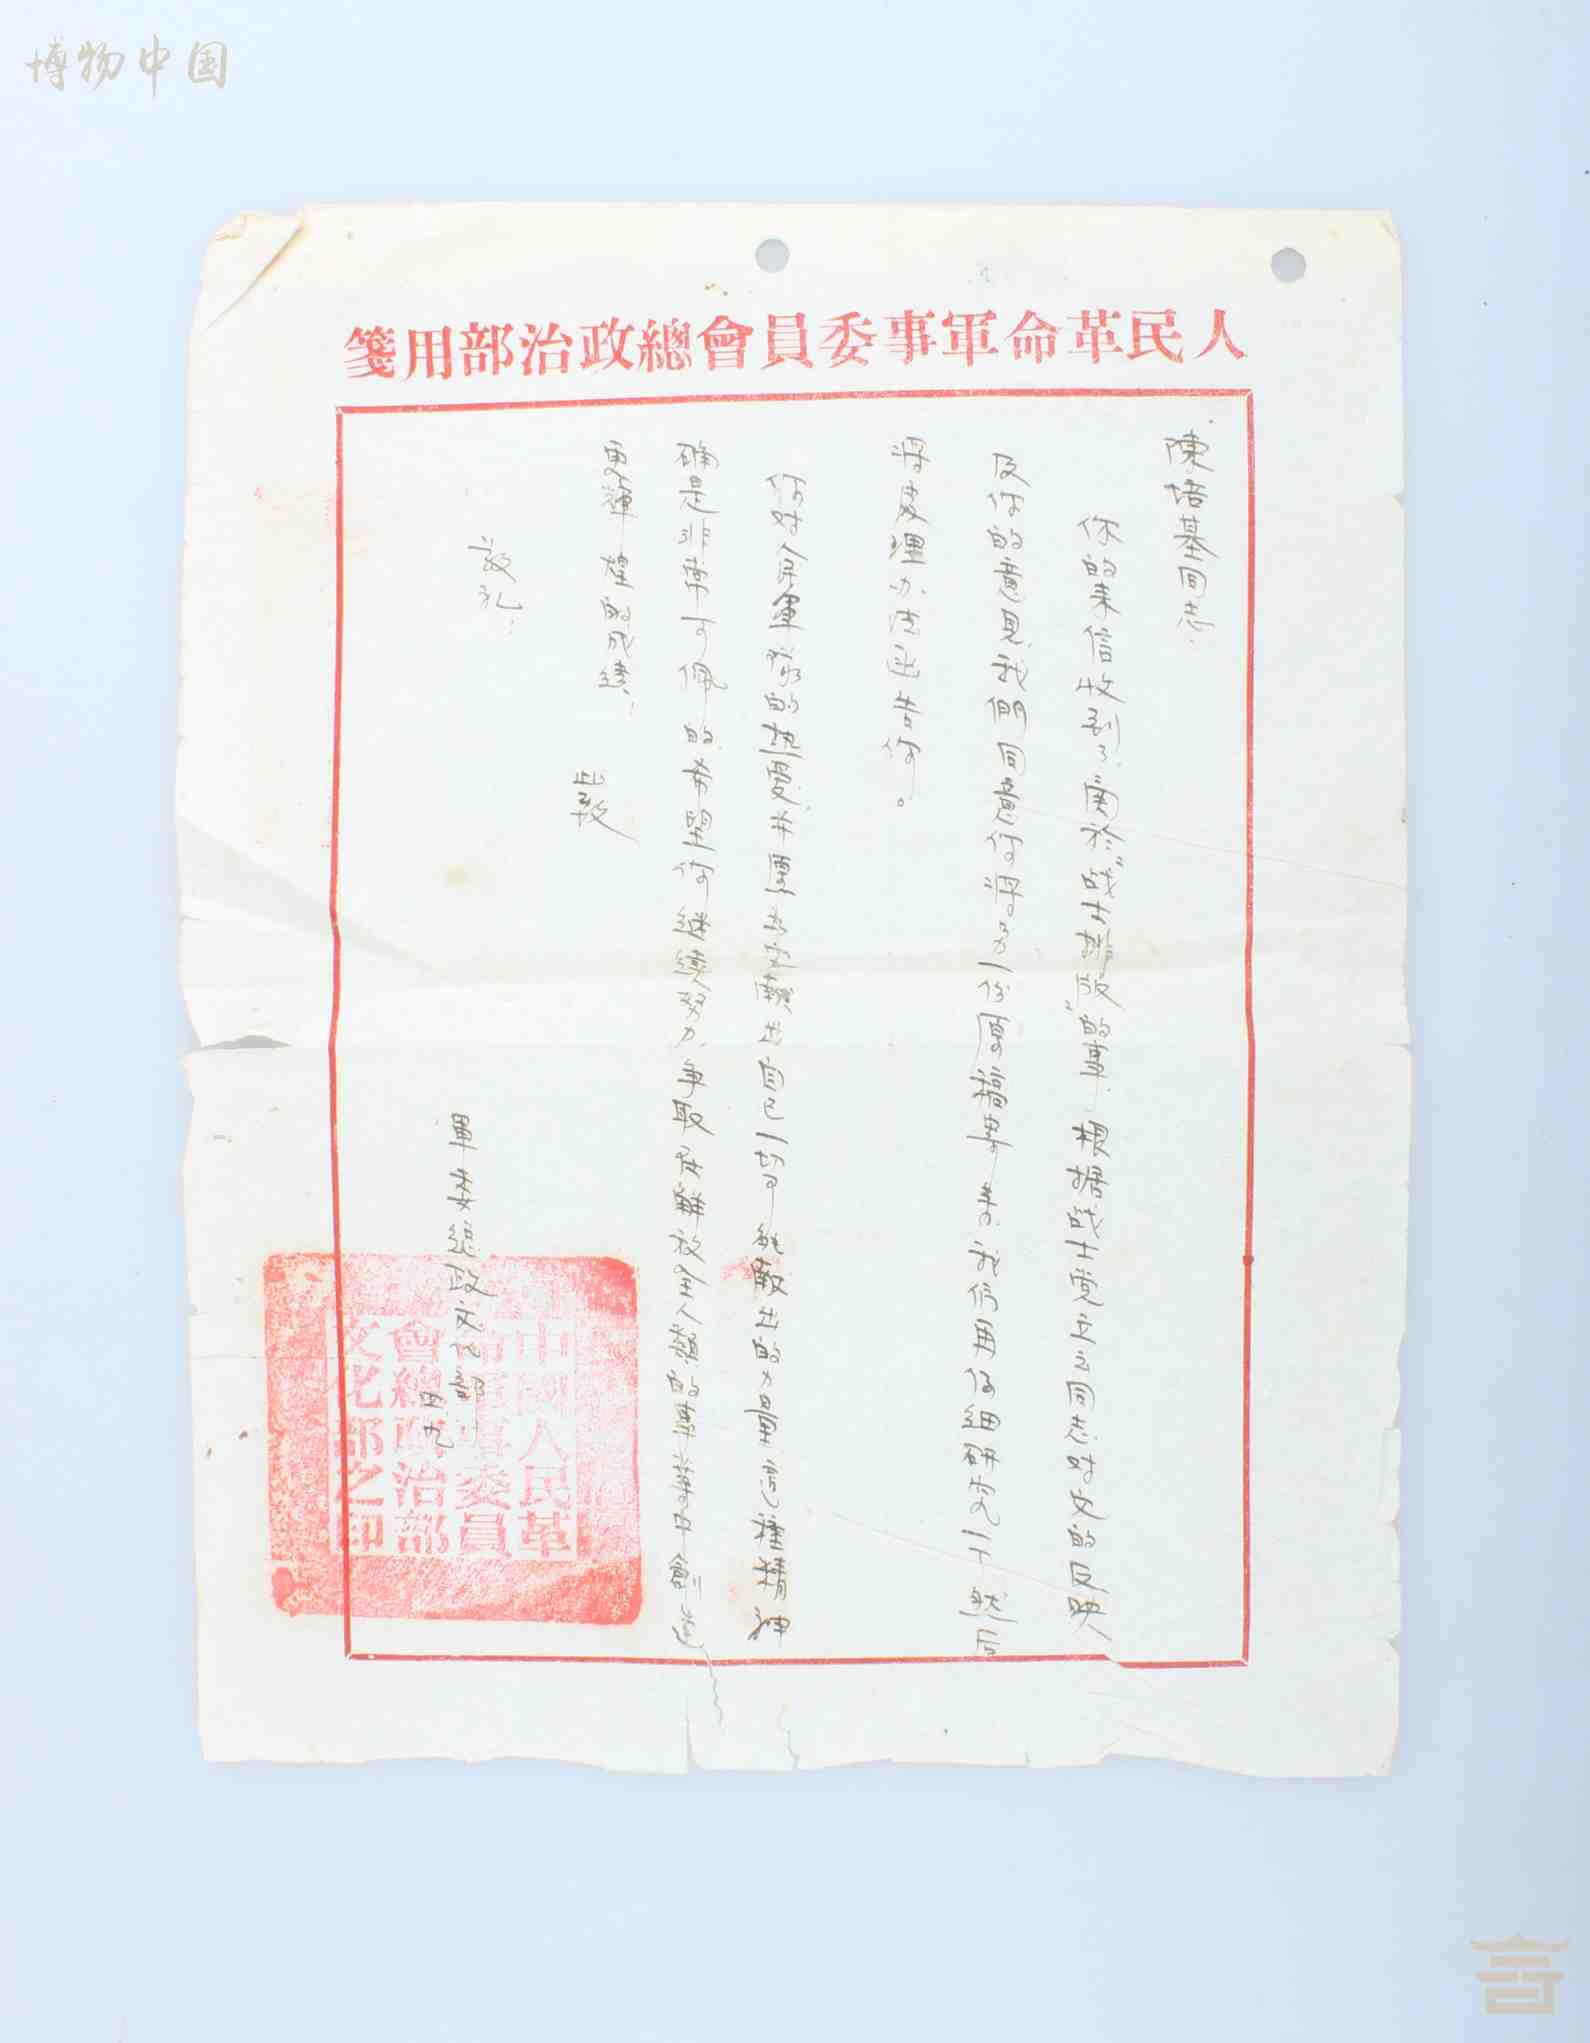 博物中国
人民革命軍事委員會總政治部用箋
陳培基同志:
你的来信收到了,関於“战士排版”的事,根据战士党立三同志对文的反映
及你的意見,我們同意你将另一份原稿寄来,我们再仔细研究一下,然后
将处理办法函告你。
你对人民軍隊的热爱,并愿意貢献出自己一切能献出的力量,这種精神
确是非常可佩的,希望你继续努力,争取在解放全人類的事業中創造
更輝煌的成績! 此致
敬礼!
軍委总政文化部
四.九
中國人民革
命軍事委員
會總政治部
文化部之印